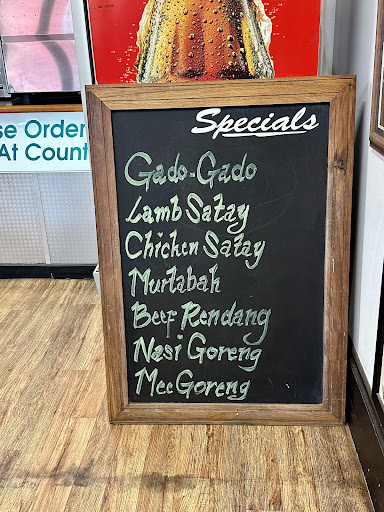 se Order
At Count
Specials
Gado-Gado
Lamb Satay
Chicken Satay
Murtabah
Beef Rendang
Nasi Goreng
Mee Goreng